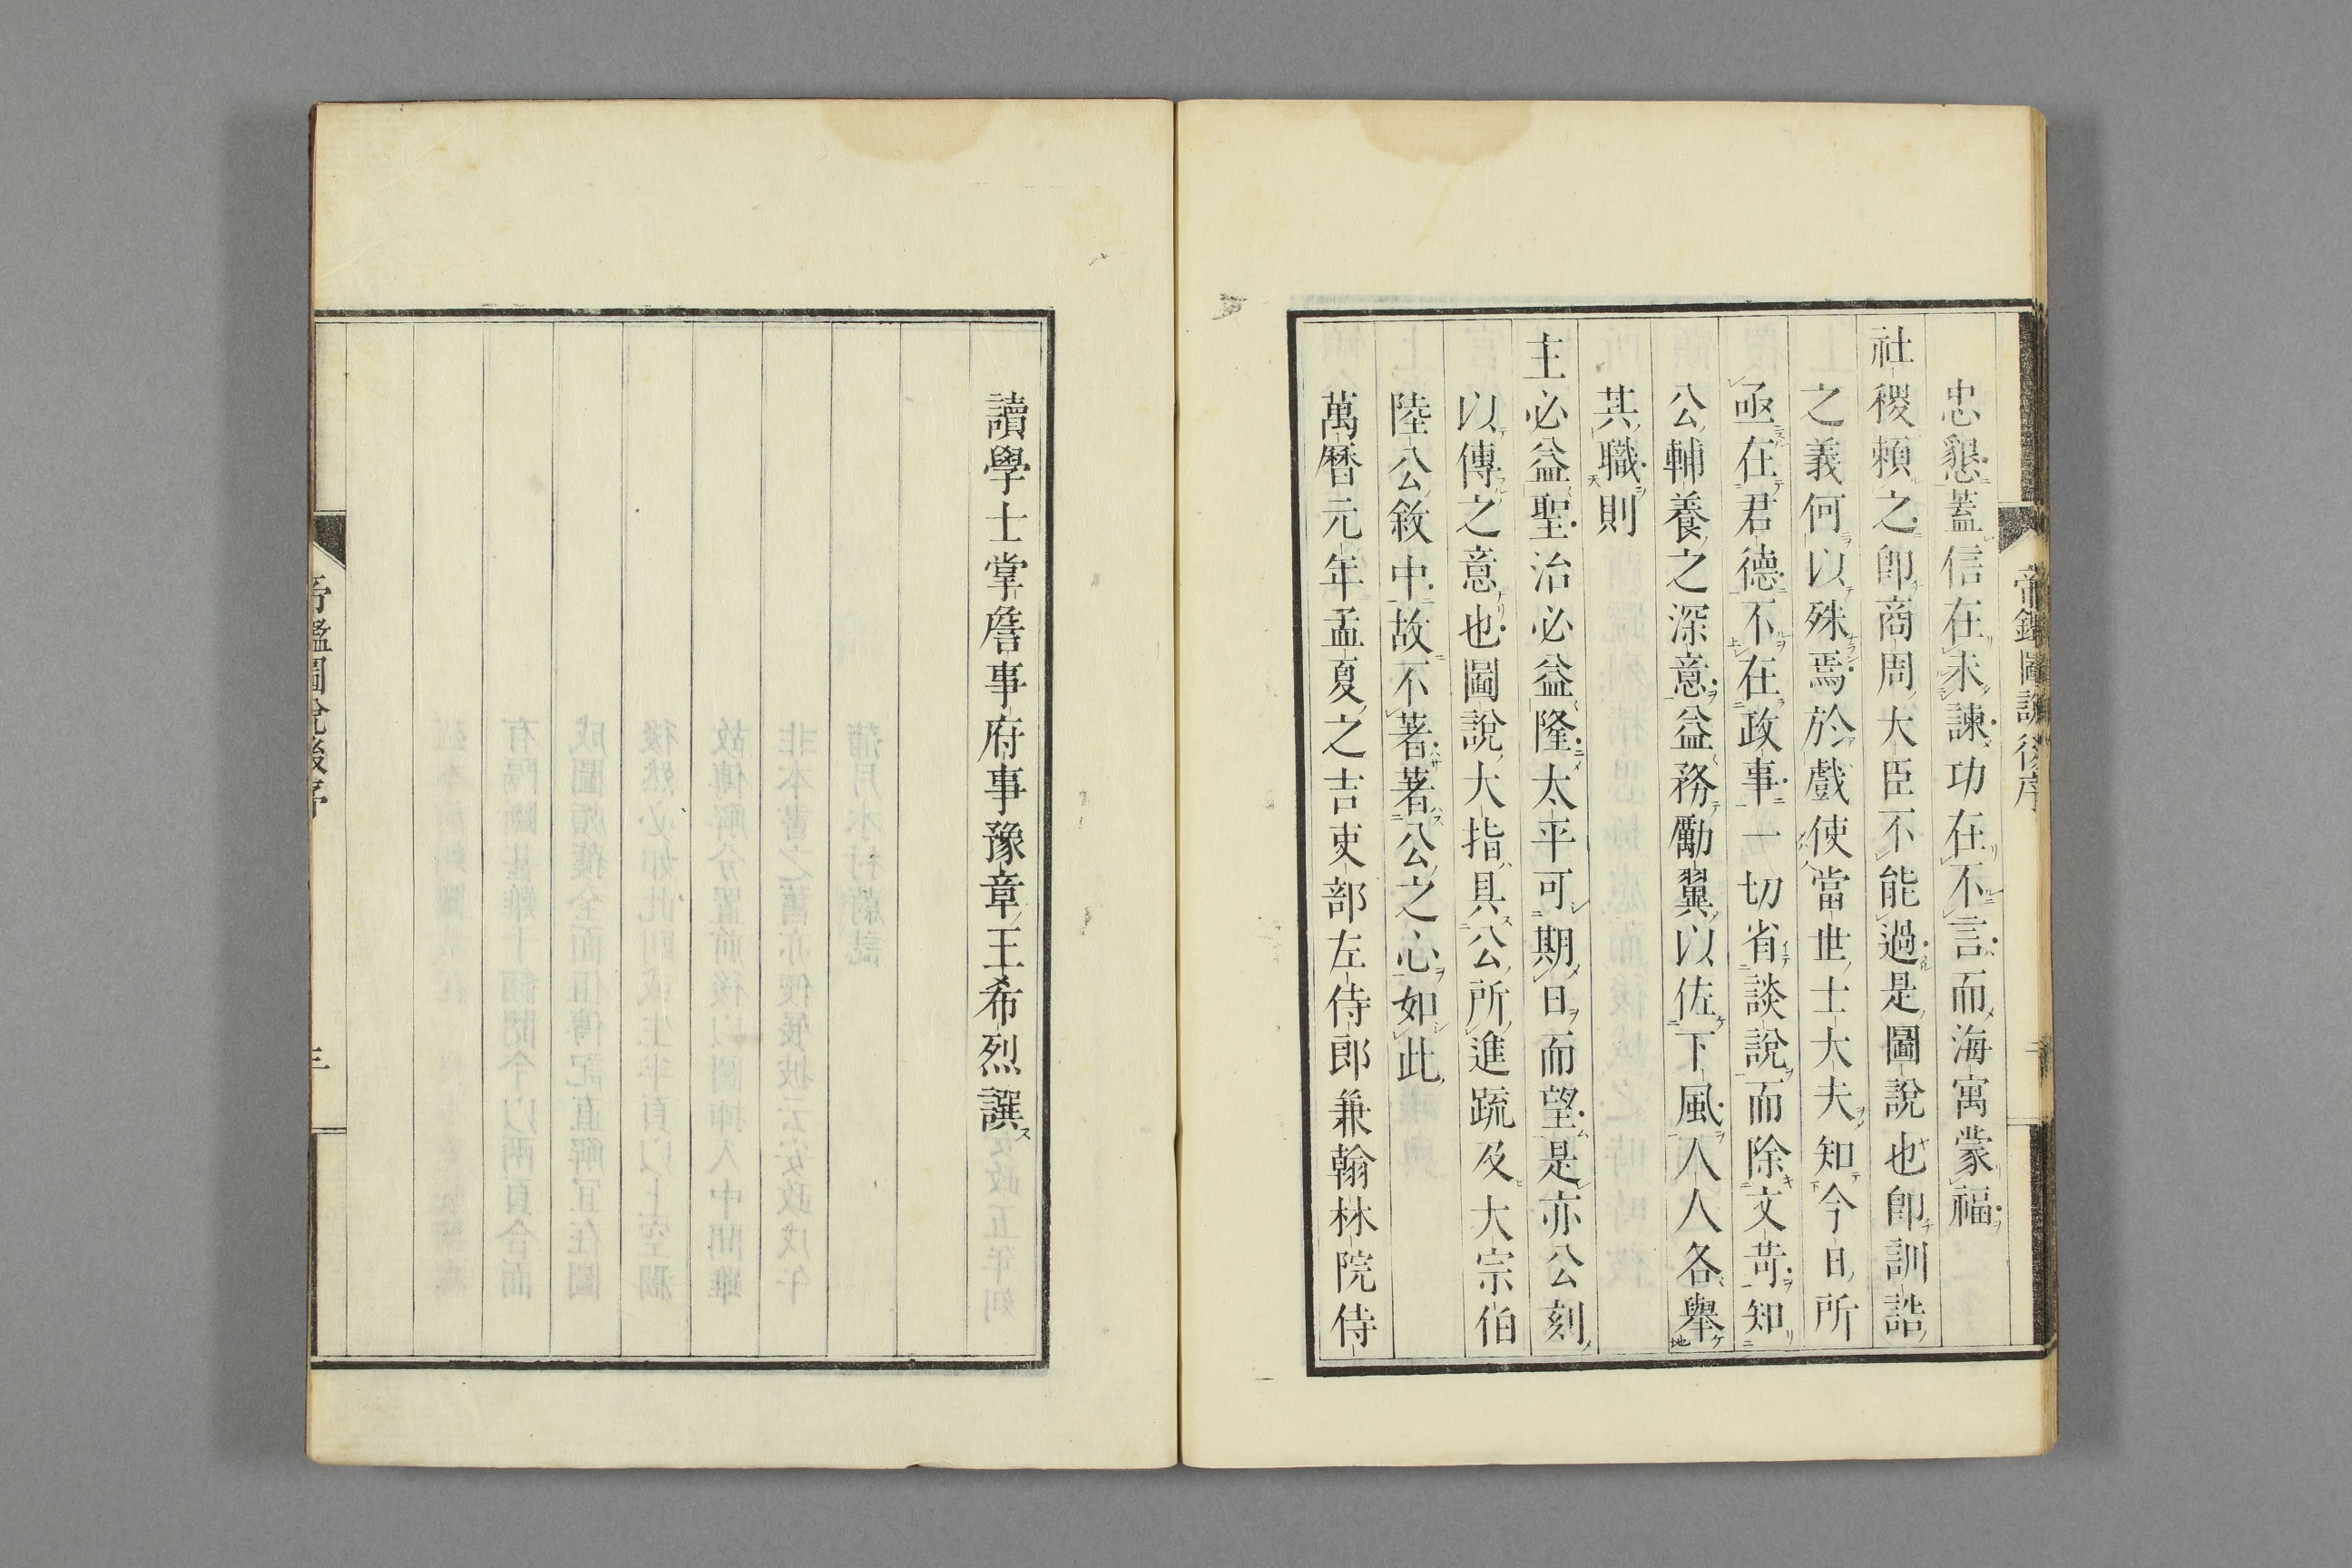 帝鑑圖說後序
忠懇蓋信在未諫功在不言而海寓蒙福
社稷賴之卽商周大臣不能過是圖說也卽訓誥
之義何以殊焉於戲使當世士大夫知今日所
亟在君德不在政事一切省談說而除文苛知
公輔養之深意益務勵翼以佐下風人人各舉
其職則
主必益聖治必益隆太平可期日而望是亦公刻
以傳之意也圖說大指具公所進疏及大宗伯
陸公敘中故不著著公之心如此
萬曆元年孟夏之吉吏部左侍郎兼翰林院侍
讀學士掌詹事府事豫章王希烈譔
帝鑑圖說後序
三